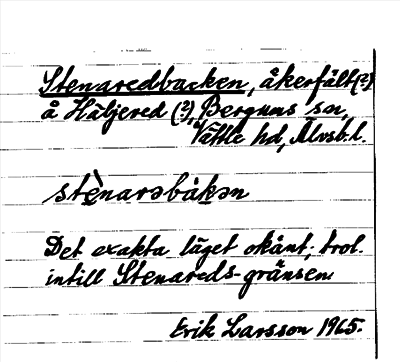 Stenaredbacken, åkerfält(?)
å Häljered (?), Bergums sn,
Vättle hd, Älvsb.l.
stè̱narəbàk̠ən
Det exakta läget okänt; trol.
intill Stenareds-gränsen.
Erik Larsson 1965.